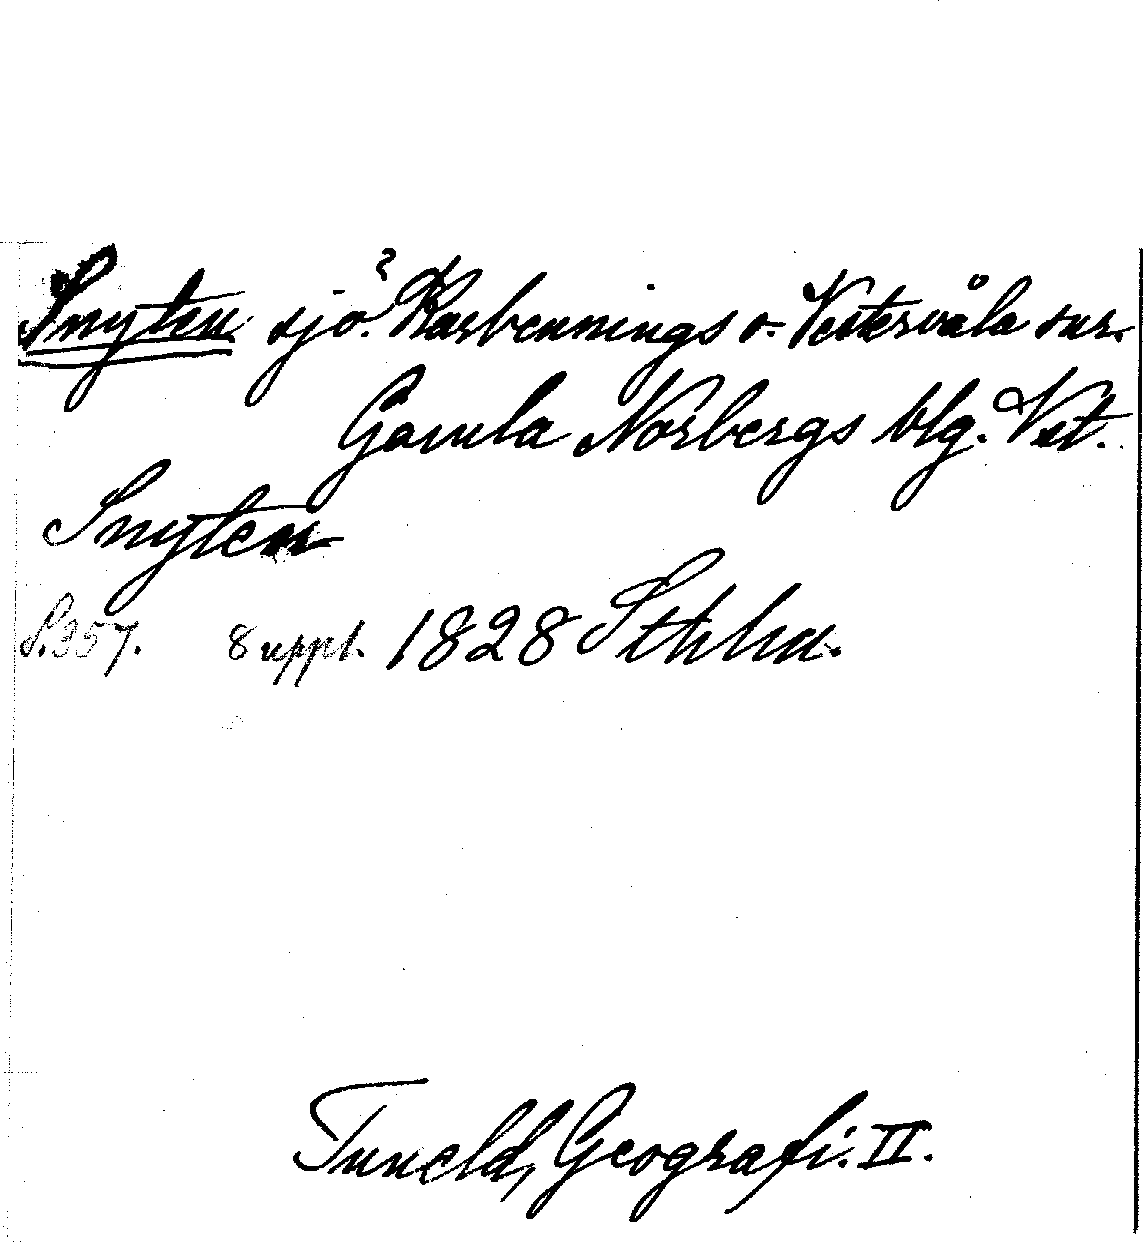 Snyten sjö. ? Karbennings o. Vestervåla snr.
Gamla Norbergs blg. Vst.
Snyten
S. 357. 8 uppl. 1828 Sthlm.
Tuneld, Geografi. II.